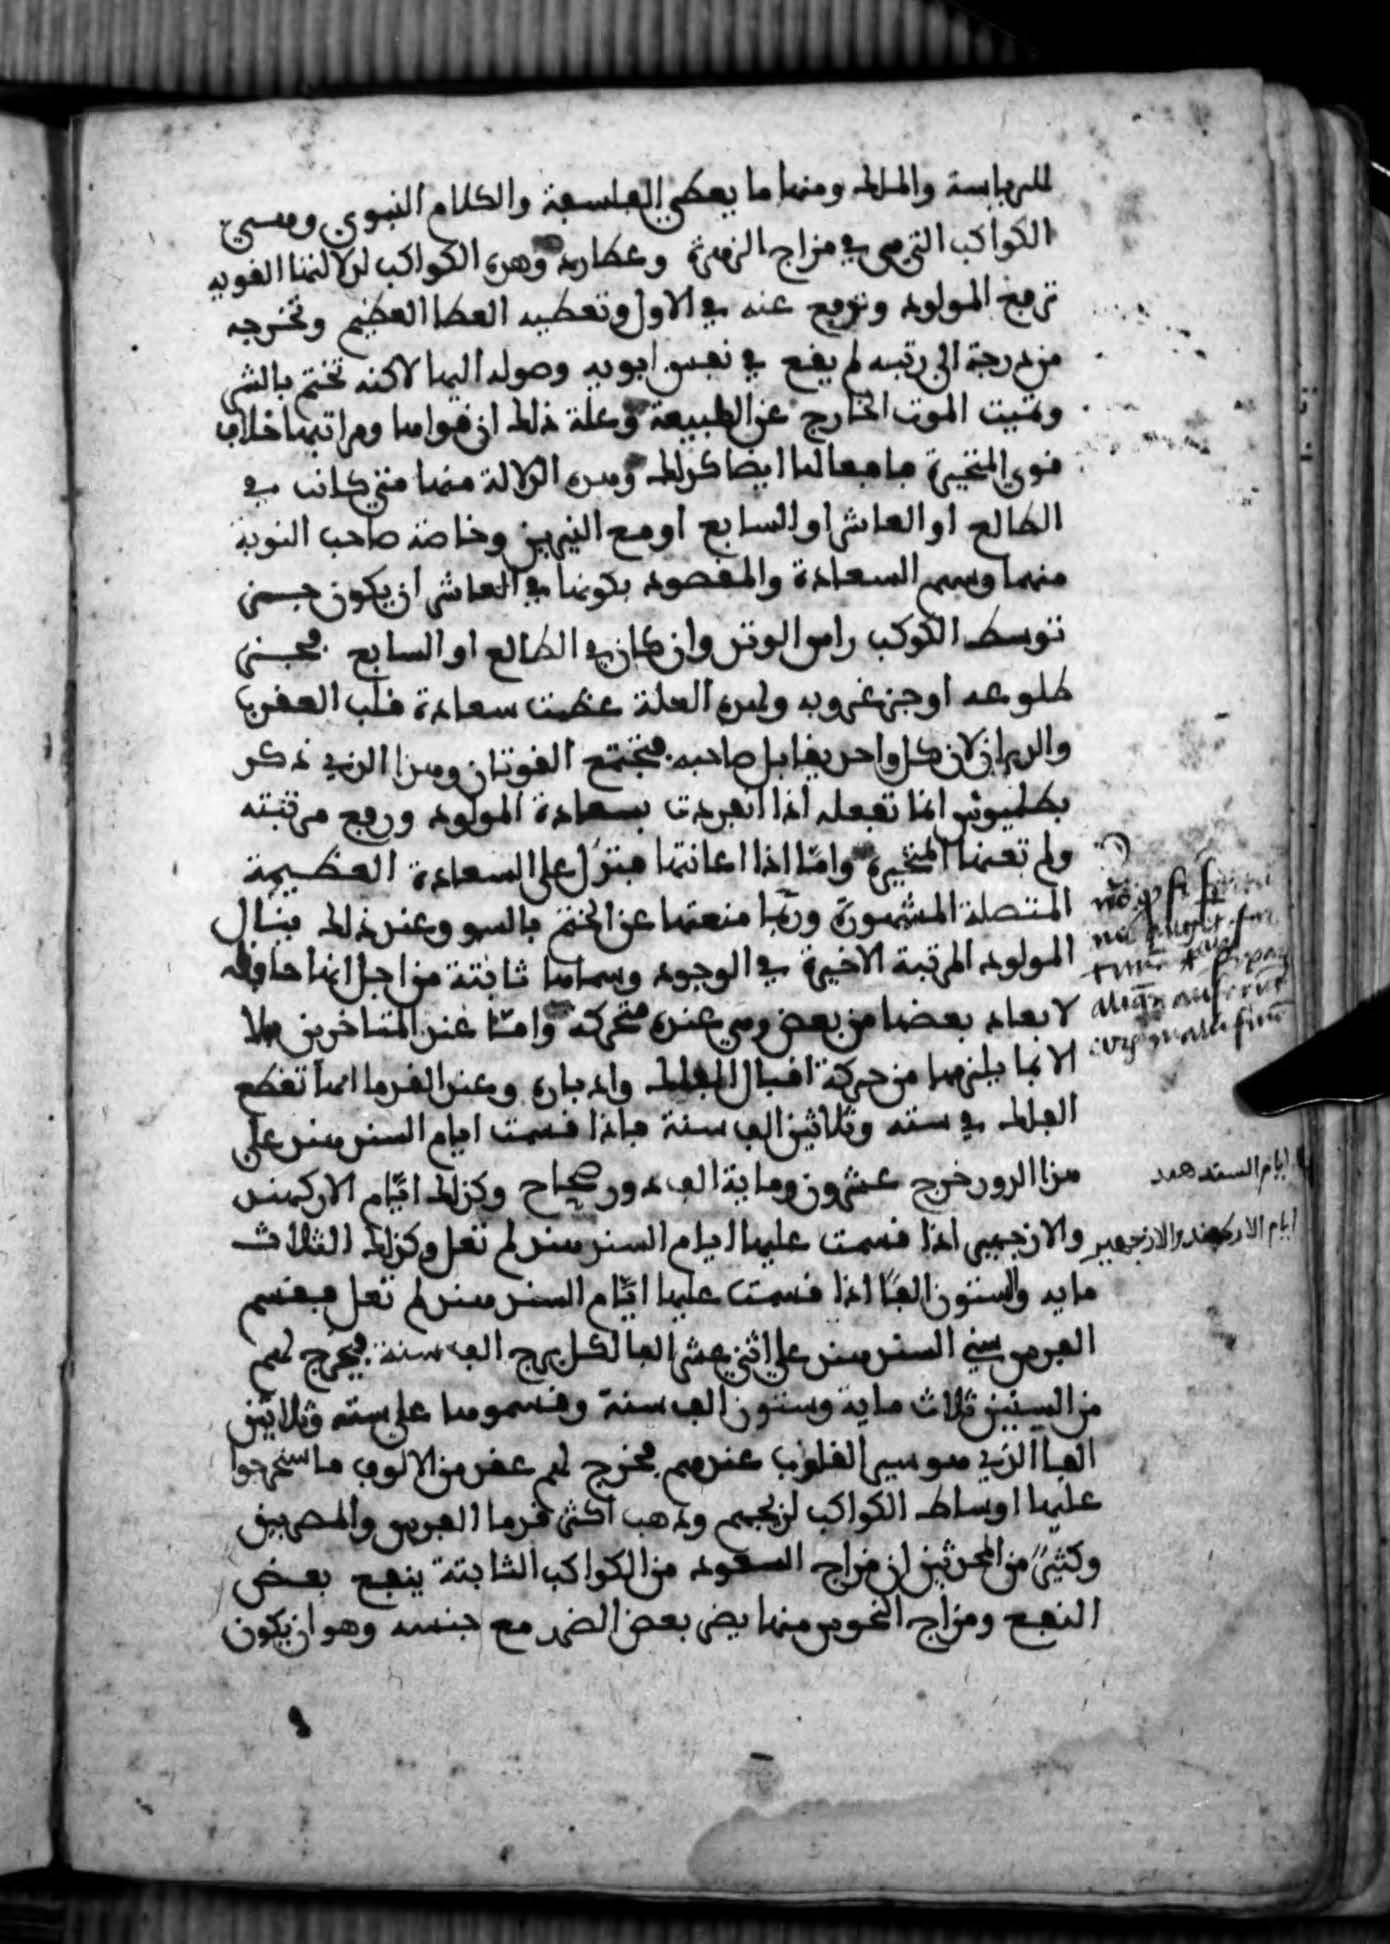 للرياسة والملك ومنها ما يعطي الفلسفة والكلام النبوي وهي
الكواكب التي هي في مزاج الزهرة وعطارد وهذه الكواكب لدلالتها القوية
ترفع المولود وترفع عنه في الاول وتعطيه العطا العظيم وتخرجه
من درجة الى رتبه لم يقع في نفس ابويه وصوله اليها لاكنه تختم بالشر
وتميت الموت الخارج عن الطبيعة وعلة ذلك ان قواها ومراتبها خلاف
قوى المتحيرة فافعالها ايضا كذلك وهذه الدلالة منها متى كانت في
الطالع او العاشر او السابع او مع النيرين وخاصة صاحب النوبة
منهما وسهم السعادة والمقصود بكونها في العاشر ان يكون حين
توسط الكوكب راس الوتد وان كان في الطالع او السابع فحين
طلوعه او حين غروبه ولهذه العلة عظمت سعادة قلب العقرب
والدبران لان كل واحد يقابل صاحبه فتجتمع القوتان وهذا الذي ذكر
بطلميوس انما تفعله اذا انفردت بسعادة المولود ورفع مرتبته
ولم تعنها المتحيرة وامّا اذا اعانتها فتدل على السعادة العظيمة
المتصلة المشهورة وربّما منعتها عن الختم بالسو وعند ذلك ينال
المولود المرتبة الاخيرة في الوجود وسماها ثابتة من اجل انها حافظه
لابعاد بعضها من بعض وهي عنده متحركه وامّا عند المتاخرين فلا
الا بما يلزمها من حركة اقبال الفلك وادباره وعند القدما انها تقطع
الفلك في سته وثلاثين الف سنة فاذا قسمت ايام السندهند على
هذا الدور خرج عشرون وماية الف دور صحاح وكذلك ايّام الاركهند
والازجبير اذا قسمت عليها ايام السندهند لم تعل وكذلك الثلاث
ماية والستون الفًا اذا قسمت عليها ايّام السندهند لم تعل فقسم
الفرس سني السندهند على اثني عشر الفا لكل برج الف سنة فيخرج لهم
من السنين ثلاث ماية وستون الف سنة وقسموها على سته وثلاثين
الفا الذي هو سير القلوب عندهم فخرج لهم عشر من الالوف فاستخرجوا
عليها اوساط الكواكب لزيجهم وذهب اكثر قدما الفرس والمصريين
وكثيرً من المحدثين ان مزاج السعود من الكواكب الثابتة ينفع بعض
النفع ومزاج النحوس منها يضر بعض الضرر مع جنسه وهو ان يكون
ايام السندهند
ايام الاركهند والازجبير